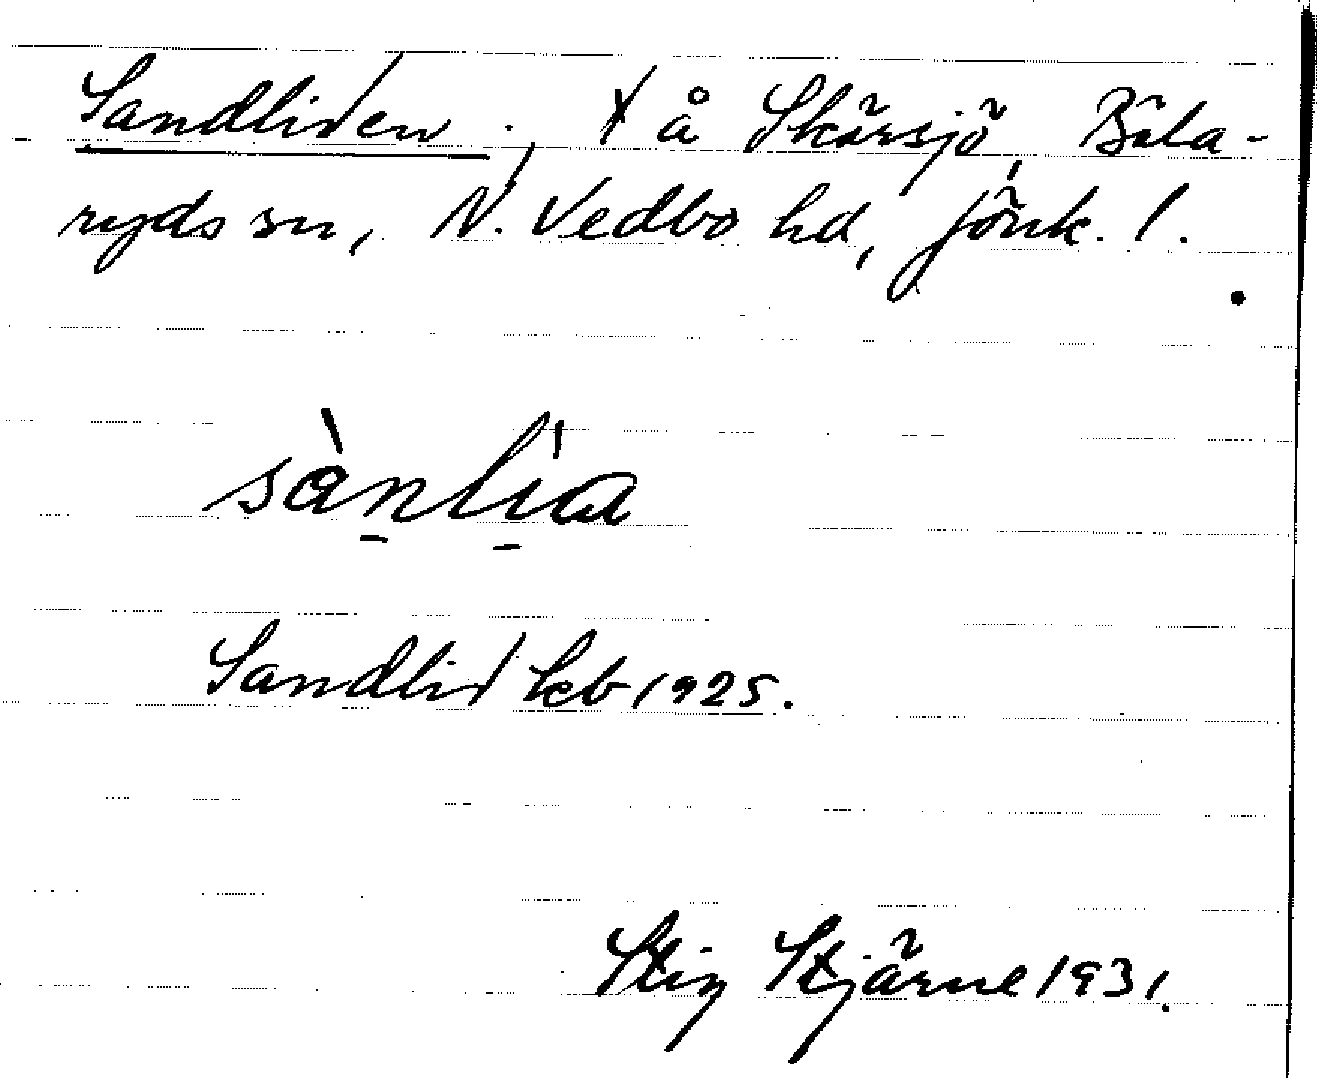 Sandliden, t å Skärsjö, Bäla-
ryds sn, N. Vedbo hd, Jönk. l.
sànlia
Sandlid kb 1925.
Stig Stjärne 1931.